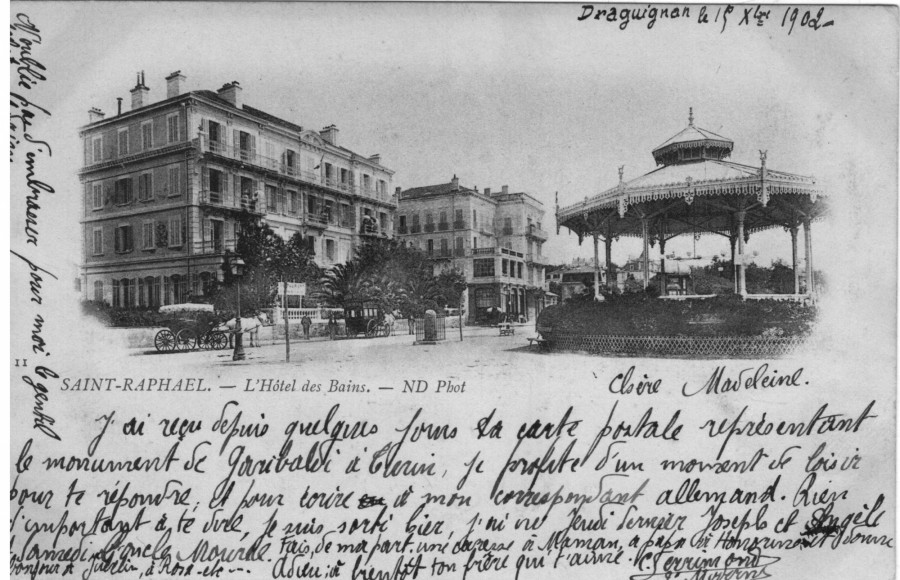 Draguignan le 15 Xbre 1902
N'oublie pas d'embrasser pour moi le gentil
11
SAINT-RAPHAEL. — L'Hôtel des Bains. — ND Phot
Chère Madeleine.
J'ai reçu depuis quelques jours ta carte postale représentant
le monument de Garibaldi à Turin, je profite d'un moment de loisir
pour te répondre, et pour écrire à mon correspondant allemand. Rien
d'important à te dire, je suis sorti hier, j'ai vu Jeudi dernier Joseph et Angèle
Samedi l'oncle Mourre. Fais, de ma part, une caresse à Maman, à papa à Honorine et Yvonne
bonjour à à Rosa etc... Adieu; à bientôt ton frère qui t'aime.